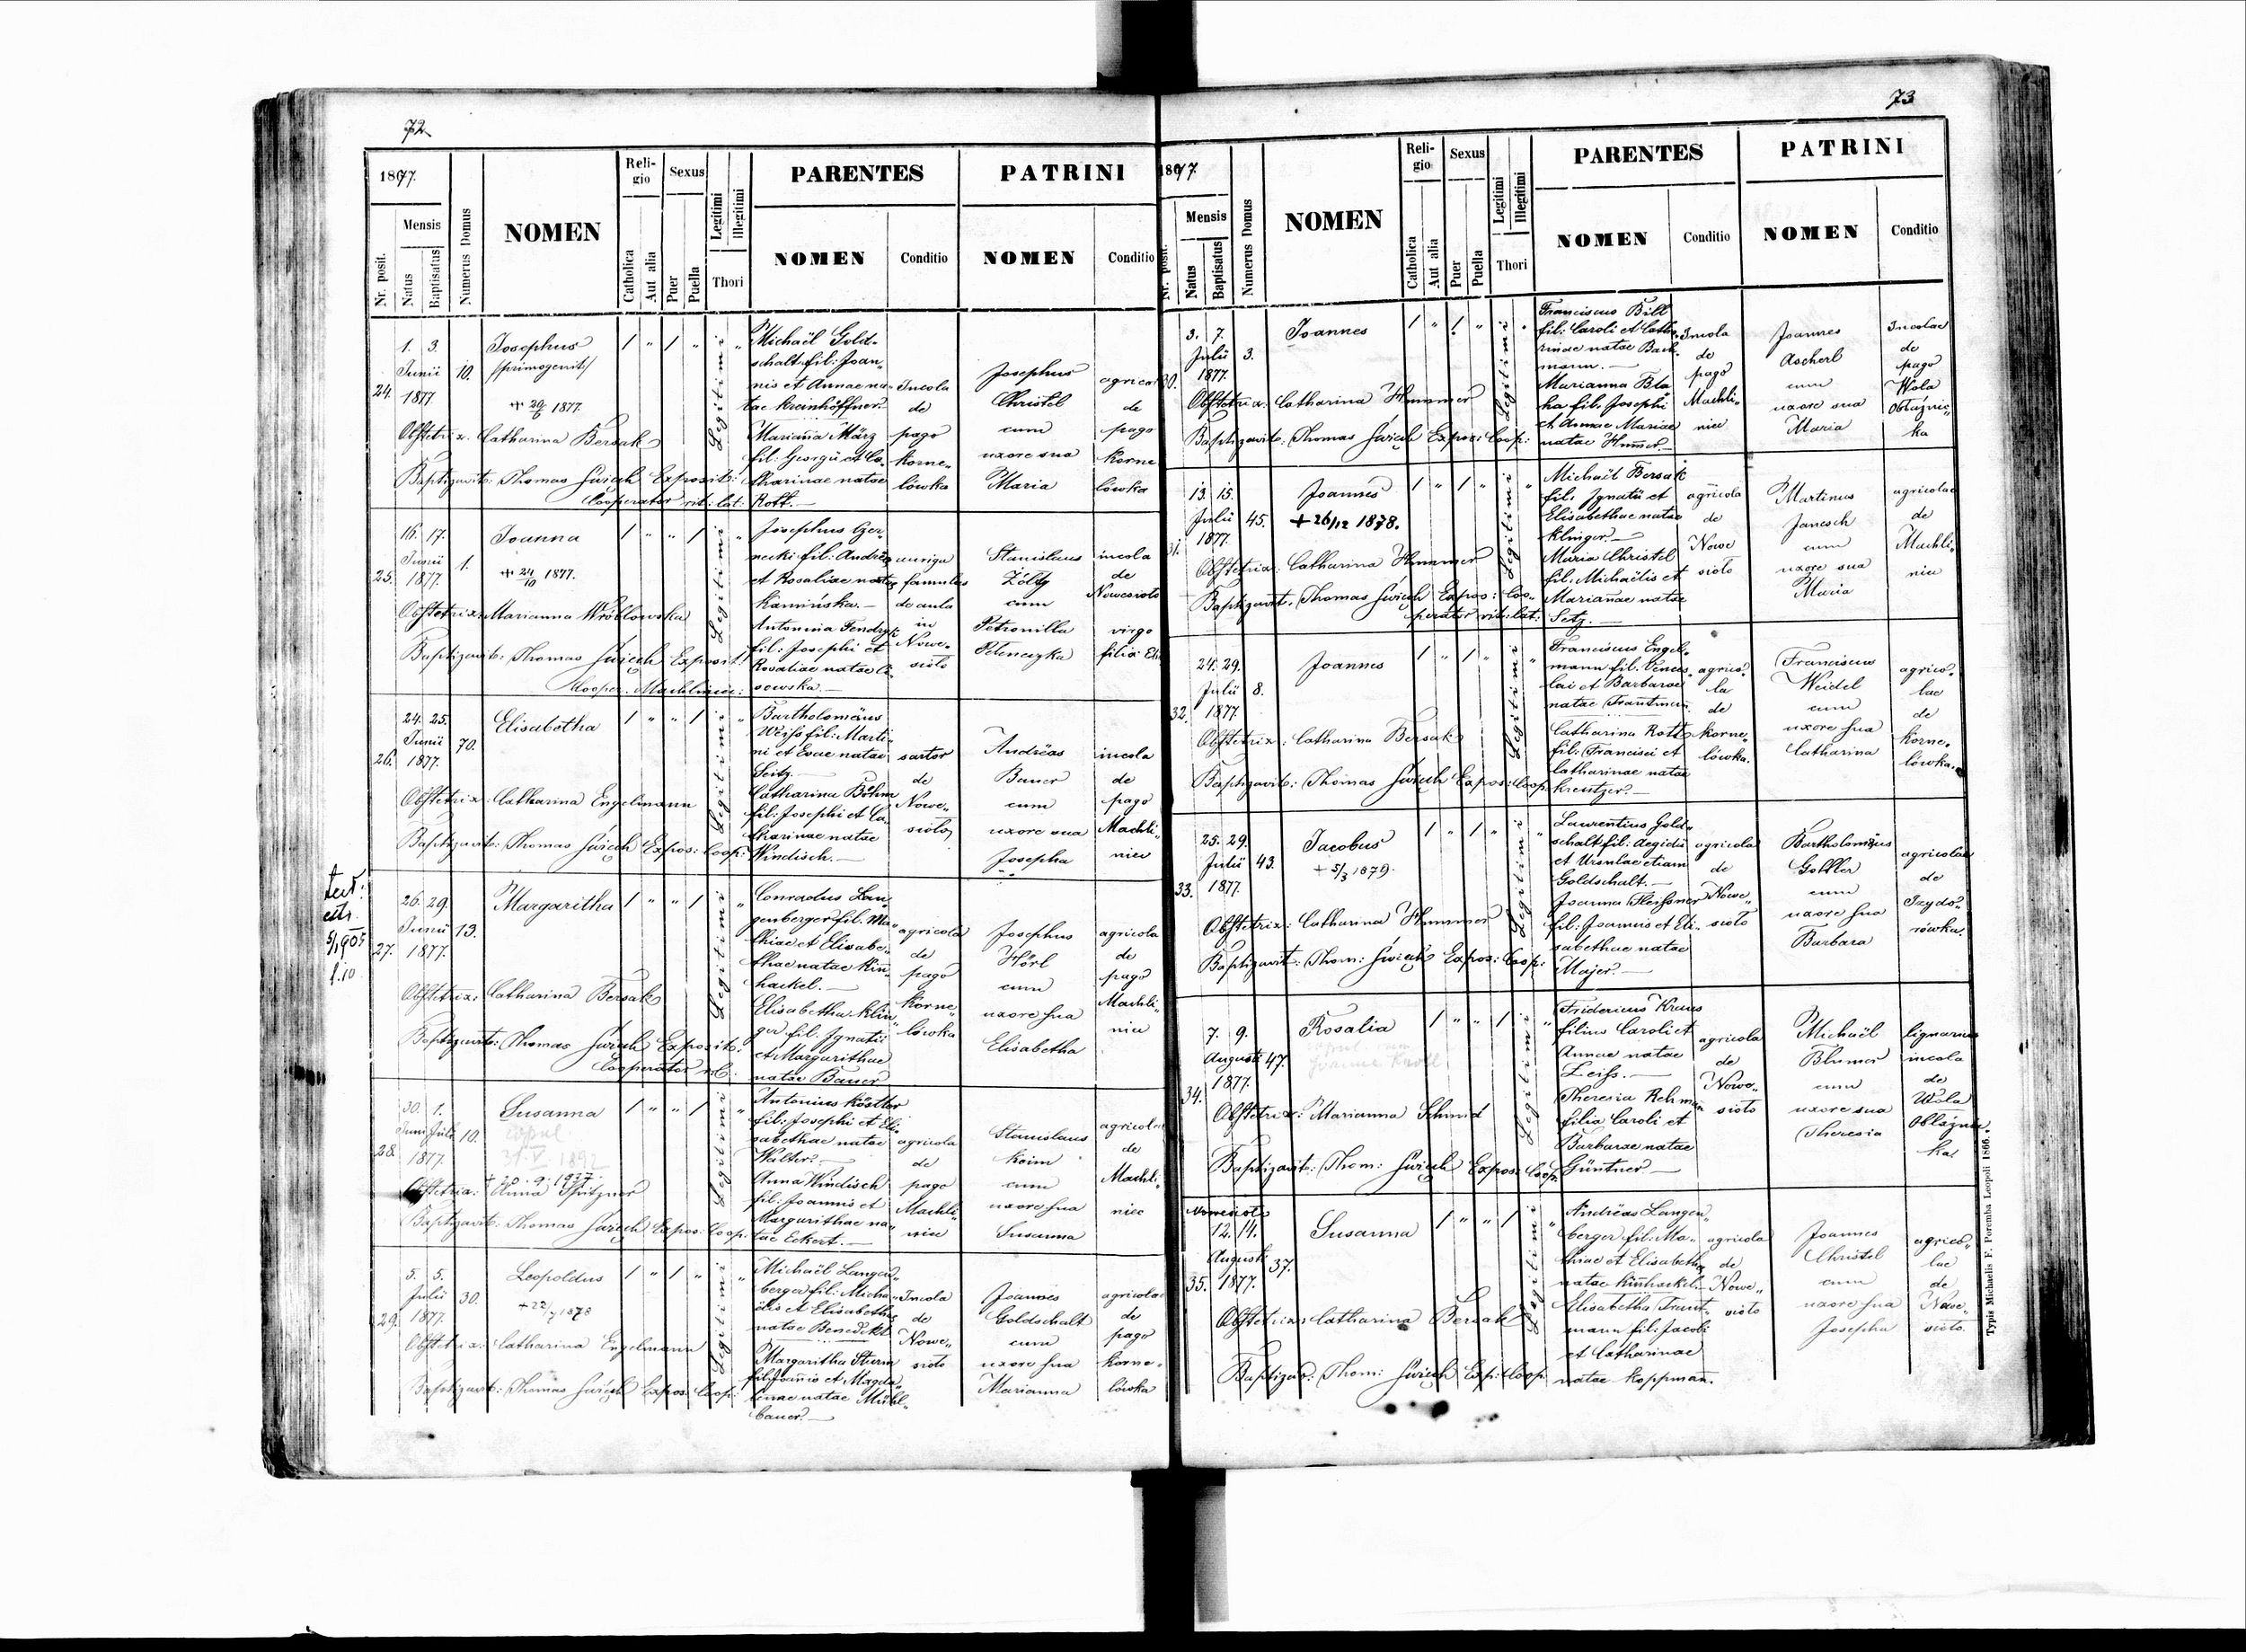 72
1877.
Nr. posit.
Mensis
Natus
Baptisatus
Numerus Domus
NOMEN
Religio
Catholica
Aut alia
Sexus
Puer
Puella
Legitimi
Illegitimi
Thori
PARENTES
NOMEN
Conditio
PATRINI
NOMEN
Conditio
24.
1. 3.
Junii
1877
10.
Josephus
/primogenit/
+ 29/6 1877.
Obstetrix: Catharina Bersak
Baptizavit: Thomas Świech Exposit:
Cooperator rit: lat:
Legitimi
Michaël Gold-
schalt fil: Joan-
nis et Annae na-
tae Kreinhöffner.
Marianna März
fil: Georgii et Ca-
tharinae natae
Rott.—
Incola
de
pago
Korne-
lówka
Josephus
Christel
cum
uxore sua
Maria
agricol
de
pago
Korne
lówka
25.
16. 17.
Junii
1877.
1.
Joanna
+ 24/10 1877.
Obstetrix: Marianna Wróblowska
Baptizavit: Thomas Świech Exposit:
Cooper. Machliniec:
Legitimi
Josephus Czer-
necki fil: Andreae
et Rosaliae natae
Kamińska.—
Antonina Fendryk
fil: Josephi et
Rosaliae natae Li-
sowska.—
auriga
famulus
de aula
in
Nowe-
sioło
Stanislaus
Żółty
cum
Petronilla
Pelenczyka
incola
de
Nowesioło
virgo
filia Eli
26.
24. 25.
Junii
1877.
70.
Elisabetha
Obstetrix: Catharina Engelmann
Baptizavit: Thomas Świech Expos: Coop:
Legitimi
Bartholomäus
Weiss fil: Marti-
ni et Evae natae
Seitz.—
Catharina Böhm
fil: Josephi et Ca-
tharinae natae
Windisch.—
sartor
de
Nowe-
sioło
Andräas
Bauer
cum
uxore sua
Josepha
incola
de
pago
Machli-
niec
27.
26. 29.
Junii
1877.
13.
Margaritha
Obstetrix: Catharina Bersak
Baptizavit: Thomas Świech Exposit:
Cooperator
Legitimi
Conradus Lan-
genberger fil. Ma-
thiae et Elisabe-
thae natae Kin-
hackel.—
Elisabetha Klin-
ger fil. Ignatii
et Margarithae
natae Bauer
agricola
de
pago
Korne-
lówka
Josephus
Hörl
cum
uxore sua
Elisabetha
agricola
de
pago
Machli-
niec
28.
30. 1.
Juni Julii
1877.
10.
Susanna
copul.
31. V. 1892
+ 20.9.1927.
Obstetrix: Anna Spitzner
Baptizavit: Thomas Świech Expos: Coop:
Legitimi
Antonius Köstler
fil: Josephi et Eli-
sabethae natae
Walter.—
Anna Windisch
fil: Joannis et
Margarithae na-
tae Eckert.—
agricola
de
pago
Machli-
niec
Stanislaus
Keim
cum
uxore sua
Susanna
agricolae
de
Machli-
niec
29.
5. 5.
Julii
1877.
30.
Leopoldus
+ 22/7 1878
Obstetrix: Catharina Engelmann
Baptizavit: Thomas Świech Expos: Coop:
Legitimi
Michaël Langen-
berger fil: Micha-
ëlis et Elisabethae
natae Benedikt
Margaritha Sturm
fil: Joannis et Magda-
lenae natae Mühl-
bauer.—
Incola
de
Nowe-
sioło
Joannes
Goldschalt
cum
uxore sua
Marianna
agricolae
de
pago
Korne-
lówka
73
1877.
Nr. posit.
Mensis
Natus
Baptisatus
Numerus Domus
NOMEN
Religio
Catholica
Aut alia
Sexus
Puer
Puella
Legitimi
Illegitimi
Thori
PARENTES
NOMEN
Conditio
PATRINI
NOMEN
Conditio
30.
3. 7.
Julii
1877.
3.
Joannes
Obstetrix: Catharina Hummer
Baptizavit: Thomas Świech Expos: Coop:
Legitimi
Franciscus Bill
fil: Caroli et Catha-
rinae natae Back-
mann.—
Marianna Bla-
ha fil. Josephi
et Annae Mariae
natae Hummer.—
Incola
de
pago
Machli-
niec
Joannes
Ascherl
cum
uxore sua
Maria
Incolae
de
pago
Wola
Obłaźnic-
ka
31.
13. 15.
Julii
1877.
45.
Joannes
+ 26/12 1878.
Obstetrix: Catharina Hummer
Baptizavit: Thomas Świech Expos: Coo-
perator rit: lat:
Legitimi
Michaël Bersak
fil. Ignatii et
Elisabethae natae
Klinger.—
Maria Christel
fil. Michaëlis et
Mariannae natae
Setz.—
agricola
de
Nowe
sioło
Martinus
Janesch
cum
uxore sua
Maria
agricolae
de
Machli-
niec
32.
24. 29.
Julii
1877.
8.
Joannes
Obstetrix: Catharina Bersak
Baptizavit: Thomas Świech Expos: Coop:
Legitimi
Franciscus Engel-
mann fil. Vences-
lai et Barbarae
natae Trautmann.
Catharina Rott
fil: Francisci et
Catharinae natae
Kreutzer.—
agrico-
la
de
Korne-
lówka.
Franciscus
Weidel
cum
uxore sua
Catharina
agrico-
lae
de
Korne-
lówka.
33.
25. 29.
Julii
1877.
43.
Jacobus
+ 5/3 1879.
Obstetrix: Catharina Hummer
Baptizavit: Thom: Świech Expos: Coop:
Legitimi
Laurentius Gold-
schalt fil: Aegidii
et Ursulae etiam
Goldschalt.—
Joanna Fleissner
fil: Joannis et Eli-
sabethae natae
Majer.—
agricola
de
Nowe-
sioło
Bartholomäus
Gottler
cum
uxore sua
Barbara
agricolae
de
Izydo-
rówka.
34.
7. 9.
Augusti
1877.
47.
Rosalia
Obstetrix: Marianna Schmid
Baptizavit: Thom: Świech Expos: Coop:
Legitimi
Fridericus Kraus
filius Caroli et
Annae natae
Zeiss.—
Theresia Rehman
filia Caroli et
Barbarae natae
Güntner—
agricola
de
Nowe-
sioło
Michaël
Blumer
cum
uxore sua
Theresia
lignarius
incola
de
Wola
Obłaźnic-
ka
35.
Nowesioło
12. 14.
Augusti
1877.
37.
Susanna
Obstetrix: Catharina Bersak
Baptizav: Thom: Świech Exp: Coop:
Legitimi
Andräas Langen-
berger fil: Ma-
thiae et Elisabethae
natae Kinhackel.
Elisabetha Traut-
mann fil: Jacobi
et Catharinae
natae Koppman.
agricola
de
Nowe-
sioło
Joannes
Christel
cum
uxore sua
Josepha
agrico-
lae
de
Nowe-
sioło.
Typis Michaelis F. Poremba Leopoli 1866.